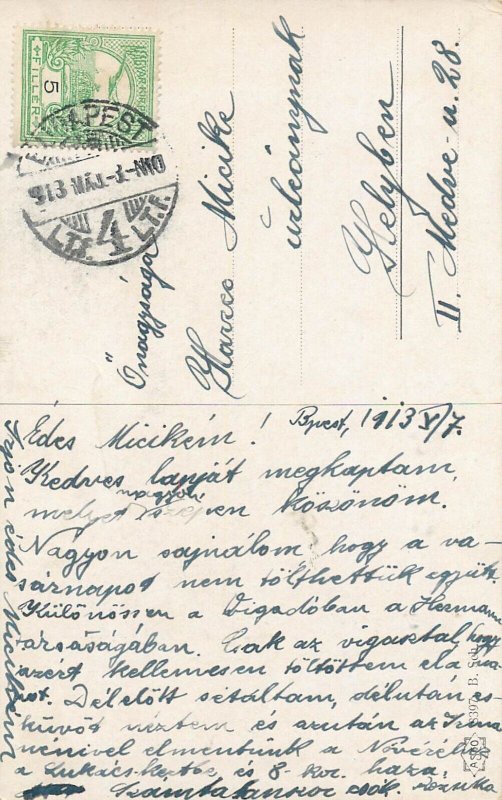 MAGYAR KIR. POSTA
5
FILLER
BUDAPEST
913 MÁJ -7 DN
4
Őnagysága
Micike
úrleánynak
Helyben
II. Medve-u. 28.
Bpest, 1913 V/7.
Édes Micikém!
Kedves lapját megkaptam,
nagyon
melyet szépen köszönöm.
Nagyon sajnálom hogy a va-
sárnapot nem tölthettük együtt.
Különössen a Vigadóban a Herman
társaságában. Csak az vigasztal, hogy
azért kellemesen töltöttem el a na-
pot. Délelőtt sétáltam, délután es-
küvőt néztem és azután az Irma
nénivel elmentünk a Nővérék
a Lukács-kertbe és 8-kor haza.
csók.
Írjon édes Micikém